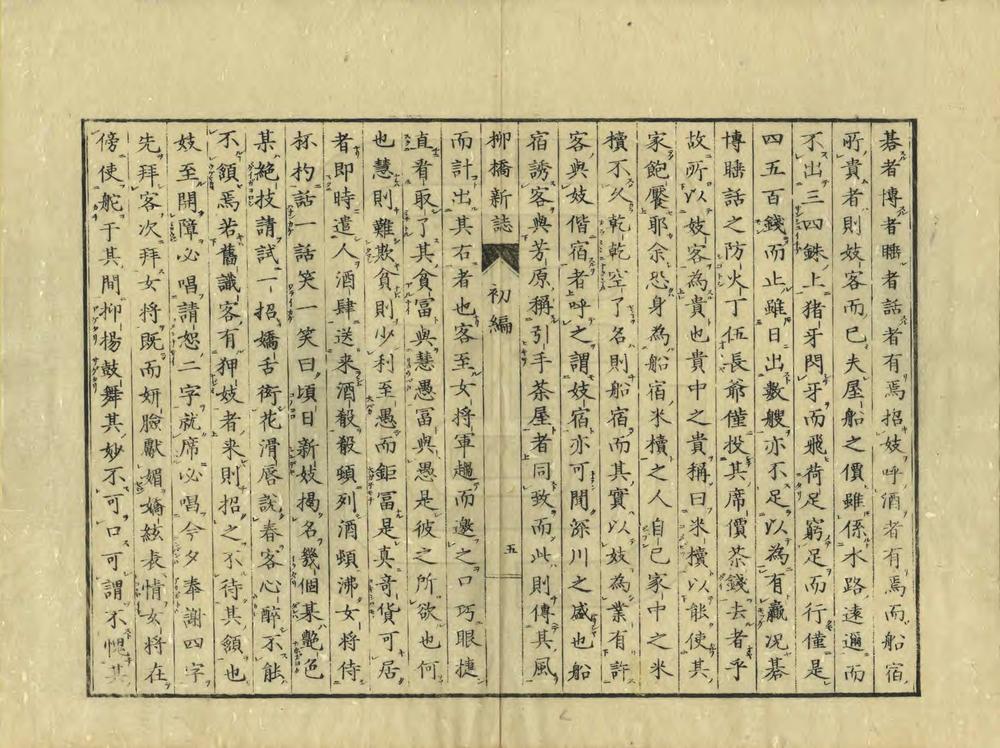 碁者博者睡者話者有焉招妓呼酒者有焉而船宿
所貴者則妓客而已夫屋船之價雖係水路遠邇而
不出三四銖上猪牙閃牙而飛荷足窮足而行僅是
四五百錢而止雖日出數艘亦不足以為有贏况碁
博睡話之防火丁伍長爺僅投其席價茶錢去者乎
故所以妓客為貴也貴中之貴稱曰米櫝以能使其
家飽饜耶余恐身為船宿米櫝之人自己家中之米
櫝不久乾乾空了名則船宿而其實以妓為業有許
客與妓偕宿者呼之謂妓宿亦可聞深川之盛也船
宿誘客與芳原稱引手茶屋者同致而此則傳其風
柳橋新誌 初編 五
而計出其右者也客至女將軍趨而邀之口巧眼捷
直看取了其貧富與慧愚富與愚是彼之所欲也何
也慧則難欺貧則少利至愚而鉅富是真奇貨可居
者即時遣人酒肆送来酒殽殽頻列酒頻沸女將侍
杯杓話一話笑一笑曰頃日新妓揭名幾個某艶色
某絶技請試一招嬌舌衒花滑唇說春客心醉不能
不頷焉若舊識客有狎妓者来則招之不待其頷也
妓至開障必唱請恕二字就席必唱今夕奉謝四字
先拜客次拜女將既而妍臉獻媚嬌絃表情女將在
傍使舵于其間抑揚鼓舞其妙不可口可謂不愧其